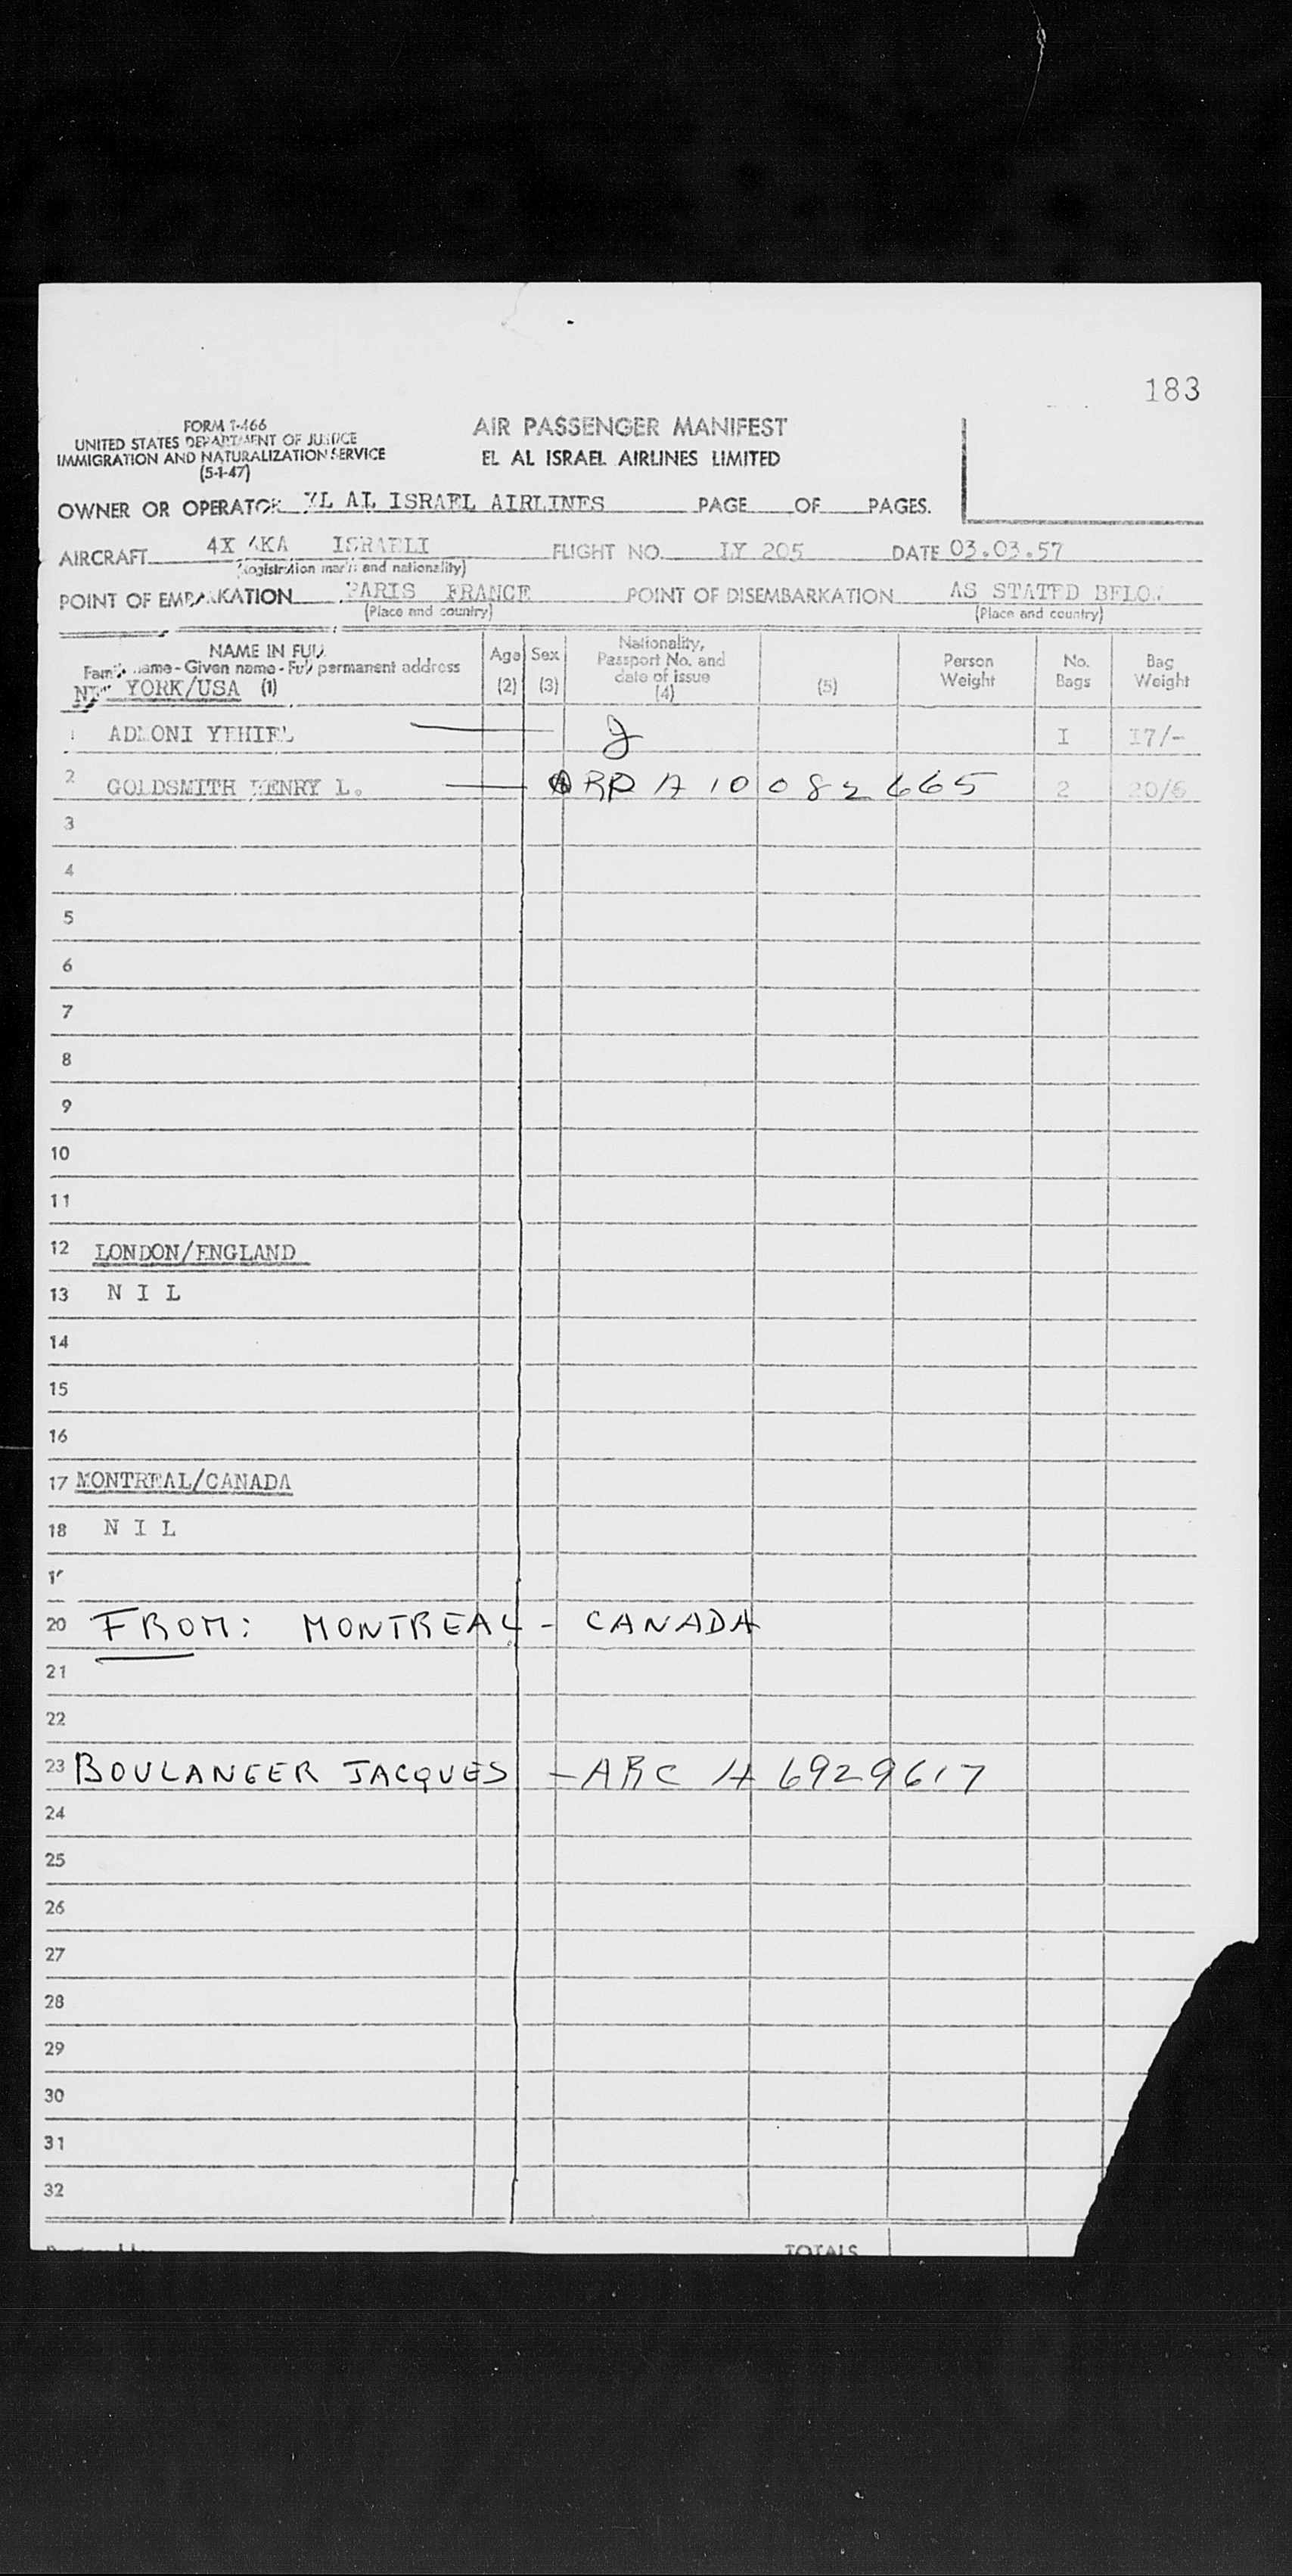 183
FORM I-466
UNITED STATES DEPARTMENT OF JUSTICE
IMMIGRATION AND NATURALIZATION SERVICE
(5-1-47)
AIR PASSENGER MANIFEST
EL AL ISRAEL AIRLINES LIMITED
OWNER OR OPERATOR EL AL ISRAEL AIRLINES PAGE OF PAGES.
AIRCRAFT 4X AKA ISRAELI FLIGHT NO. LY 205 DATE 03.03.57
(Registration mark and nationality)
POINT OF EMBARKATION PARIS FRANCE POINT OF DISEMBARKATION AS STATED BELOW
(Place and country) (Place and country)
NAME IN FULL Age Sex Nationality, Person No. Bag
Family name - Given name - Full permanent address Passport No. and Weight Bags Weight
NEW YORK/USA (1) (2) (3) date of issue (5)
(4)
1 YEHIEL I 17/-
2 GOLDSMITH HENRY L. RP A 10 082 665 2
3
4
5
6
7
8
9
10
11
12 LONDON/ENGLAND
13 N I L
14
15
16
17 MONTREAL/CANADA
18 N I L
20 FROM: MONTREAL - CANADA
21
22
23 BOULANGER JACQUES - ARC A 6929617
24
25
26
27
28
29
30
31
32
TOTALS